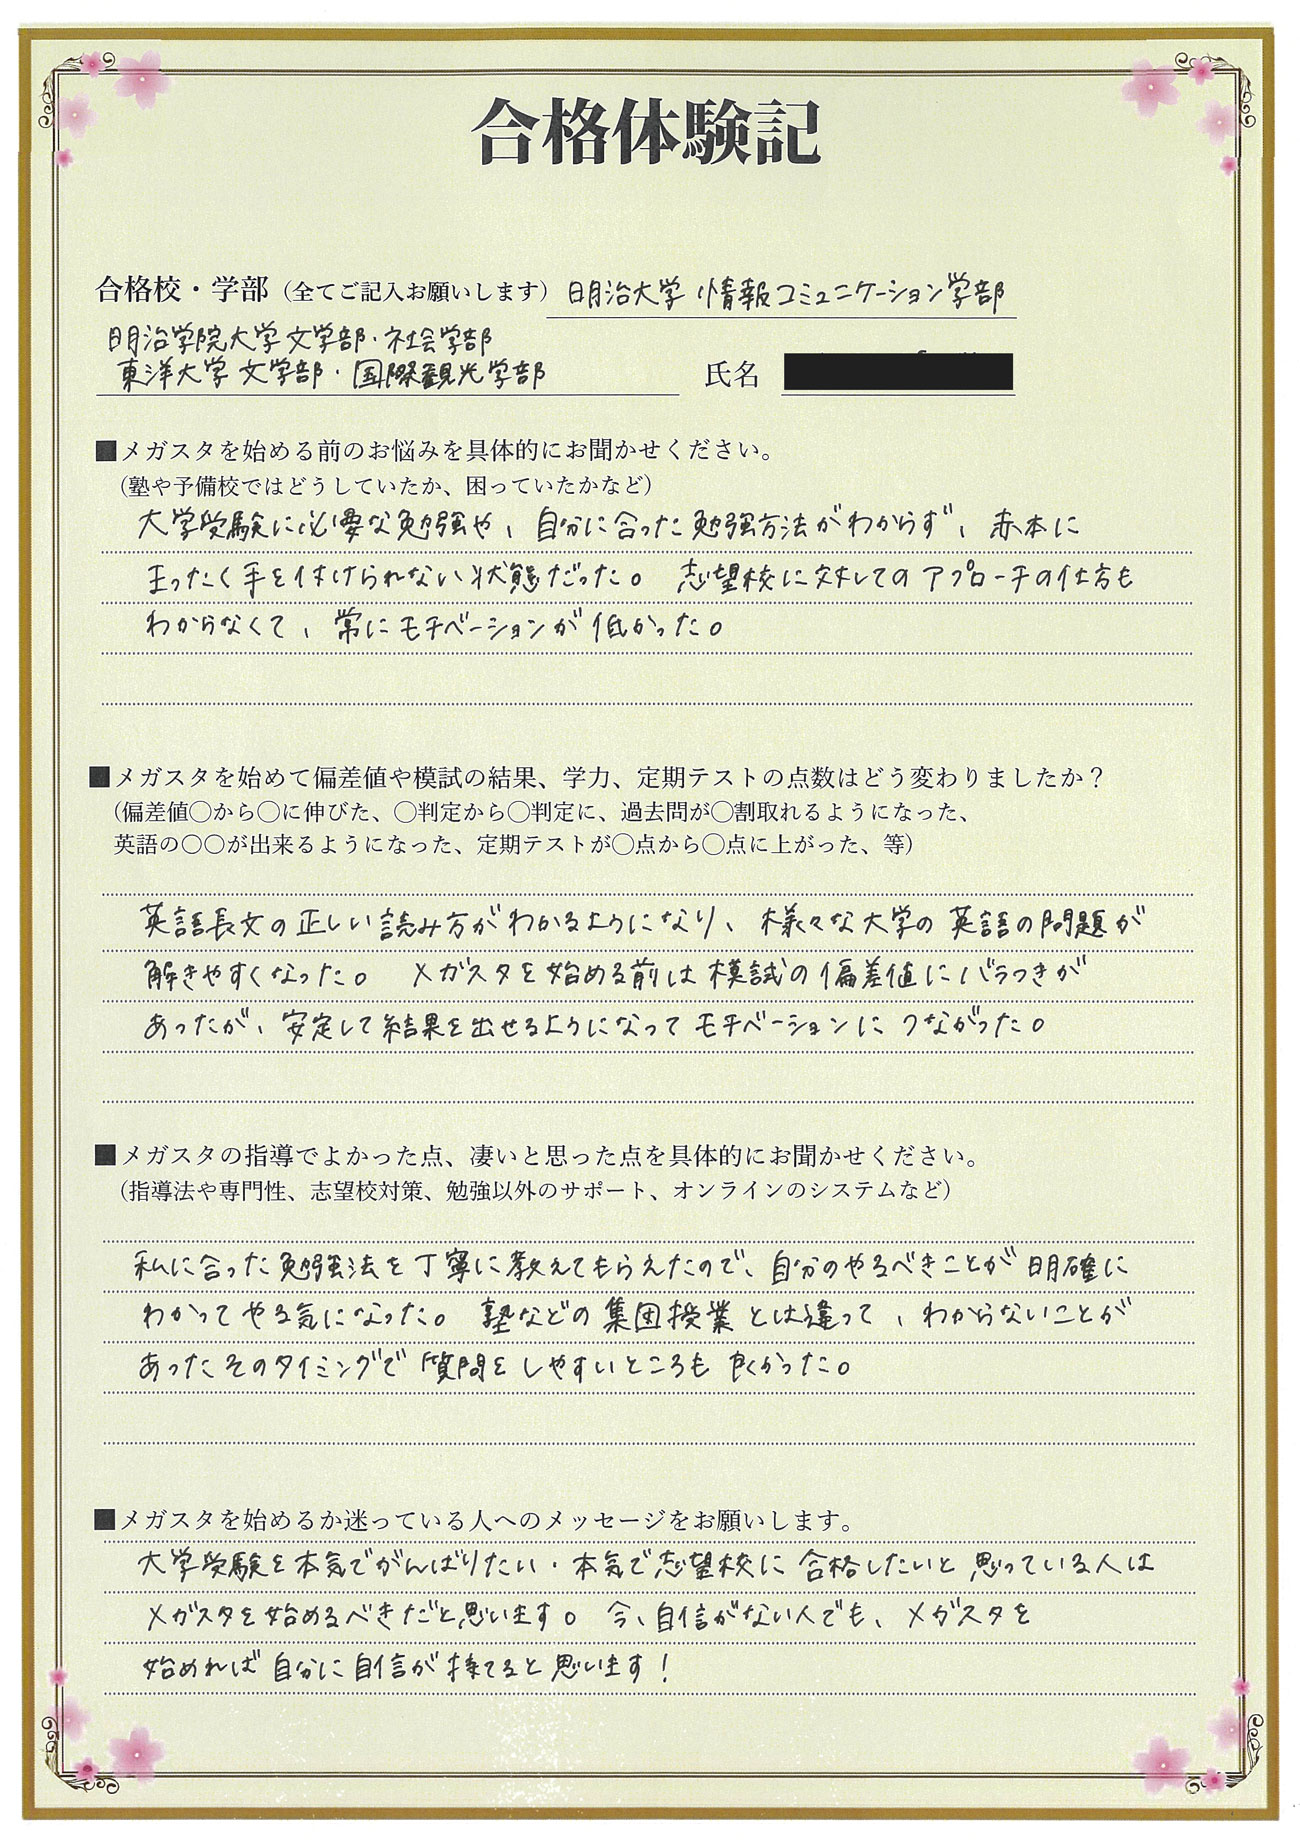 合格体験記
合格校・学部(全てご記入お願いします) 明治大学 情報コミュニケーション学部
明治学院大学 文学部・社会学部
東洋大学 文学部・国際観光学部
氏名
■メガスタを始める前のお悩みを具体的にお聞かせください。
(塾や予備校ではどうしていたか、困っていたかなど)
大学受験に必要な勉強や、自分に合った勉強方法がわからず、赤本に
まったく手を付けられない状態だった。 志望校に対してのアプローチの仕方も
わからなくて、常にモチベーションが低かった。
■メガスタを始めて偏差値や模試の結果、学力、定期テストの点数はどう変わりましたか？
(偏差値〇から〇に伸びた、〇判定から〇判定に、過去問が〇割取れるようになった、
英語の〇〇が出来るようになった、定期テストが〇点から〇点に上がった、等)
英語長文の正しい読み方がわかるようになり、様々な大学の英語の問題が
解きやすくなった。 メガスタを始める前は模試の偏差値にバラつきが
あったが、安定して結果を出せるようになってモチベーションにつながった。
■メガスタの指導でよかった点、凄いと思った点を具体的にお聞かせください。
(指導法や専門性、志望校対策、勉強以外のサポート、オンラインのシステムなど)
私に合った勉強法を丁寧に教えてもらえたので、自分のやるべきことが明確に
わかってやる気になった。 塾などの集団授業とは違って、わからないことが
あったそのタイミングで質問をしやすいところも良くかった。
■メガスタを始めるか迷っている人へのメッセージをお願いします。
大学受験を本気でがんばりたい・本気で志望校に合格したいと思っている人は
メガスタを始めるべきだと思います。 今、自信がない人でも、メガスタを
始めれば自分に自信が持てると思います！